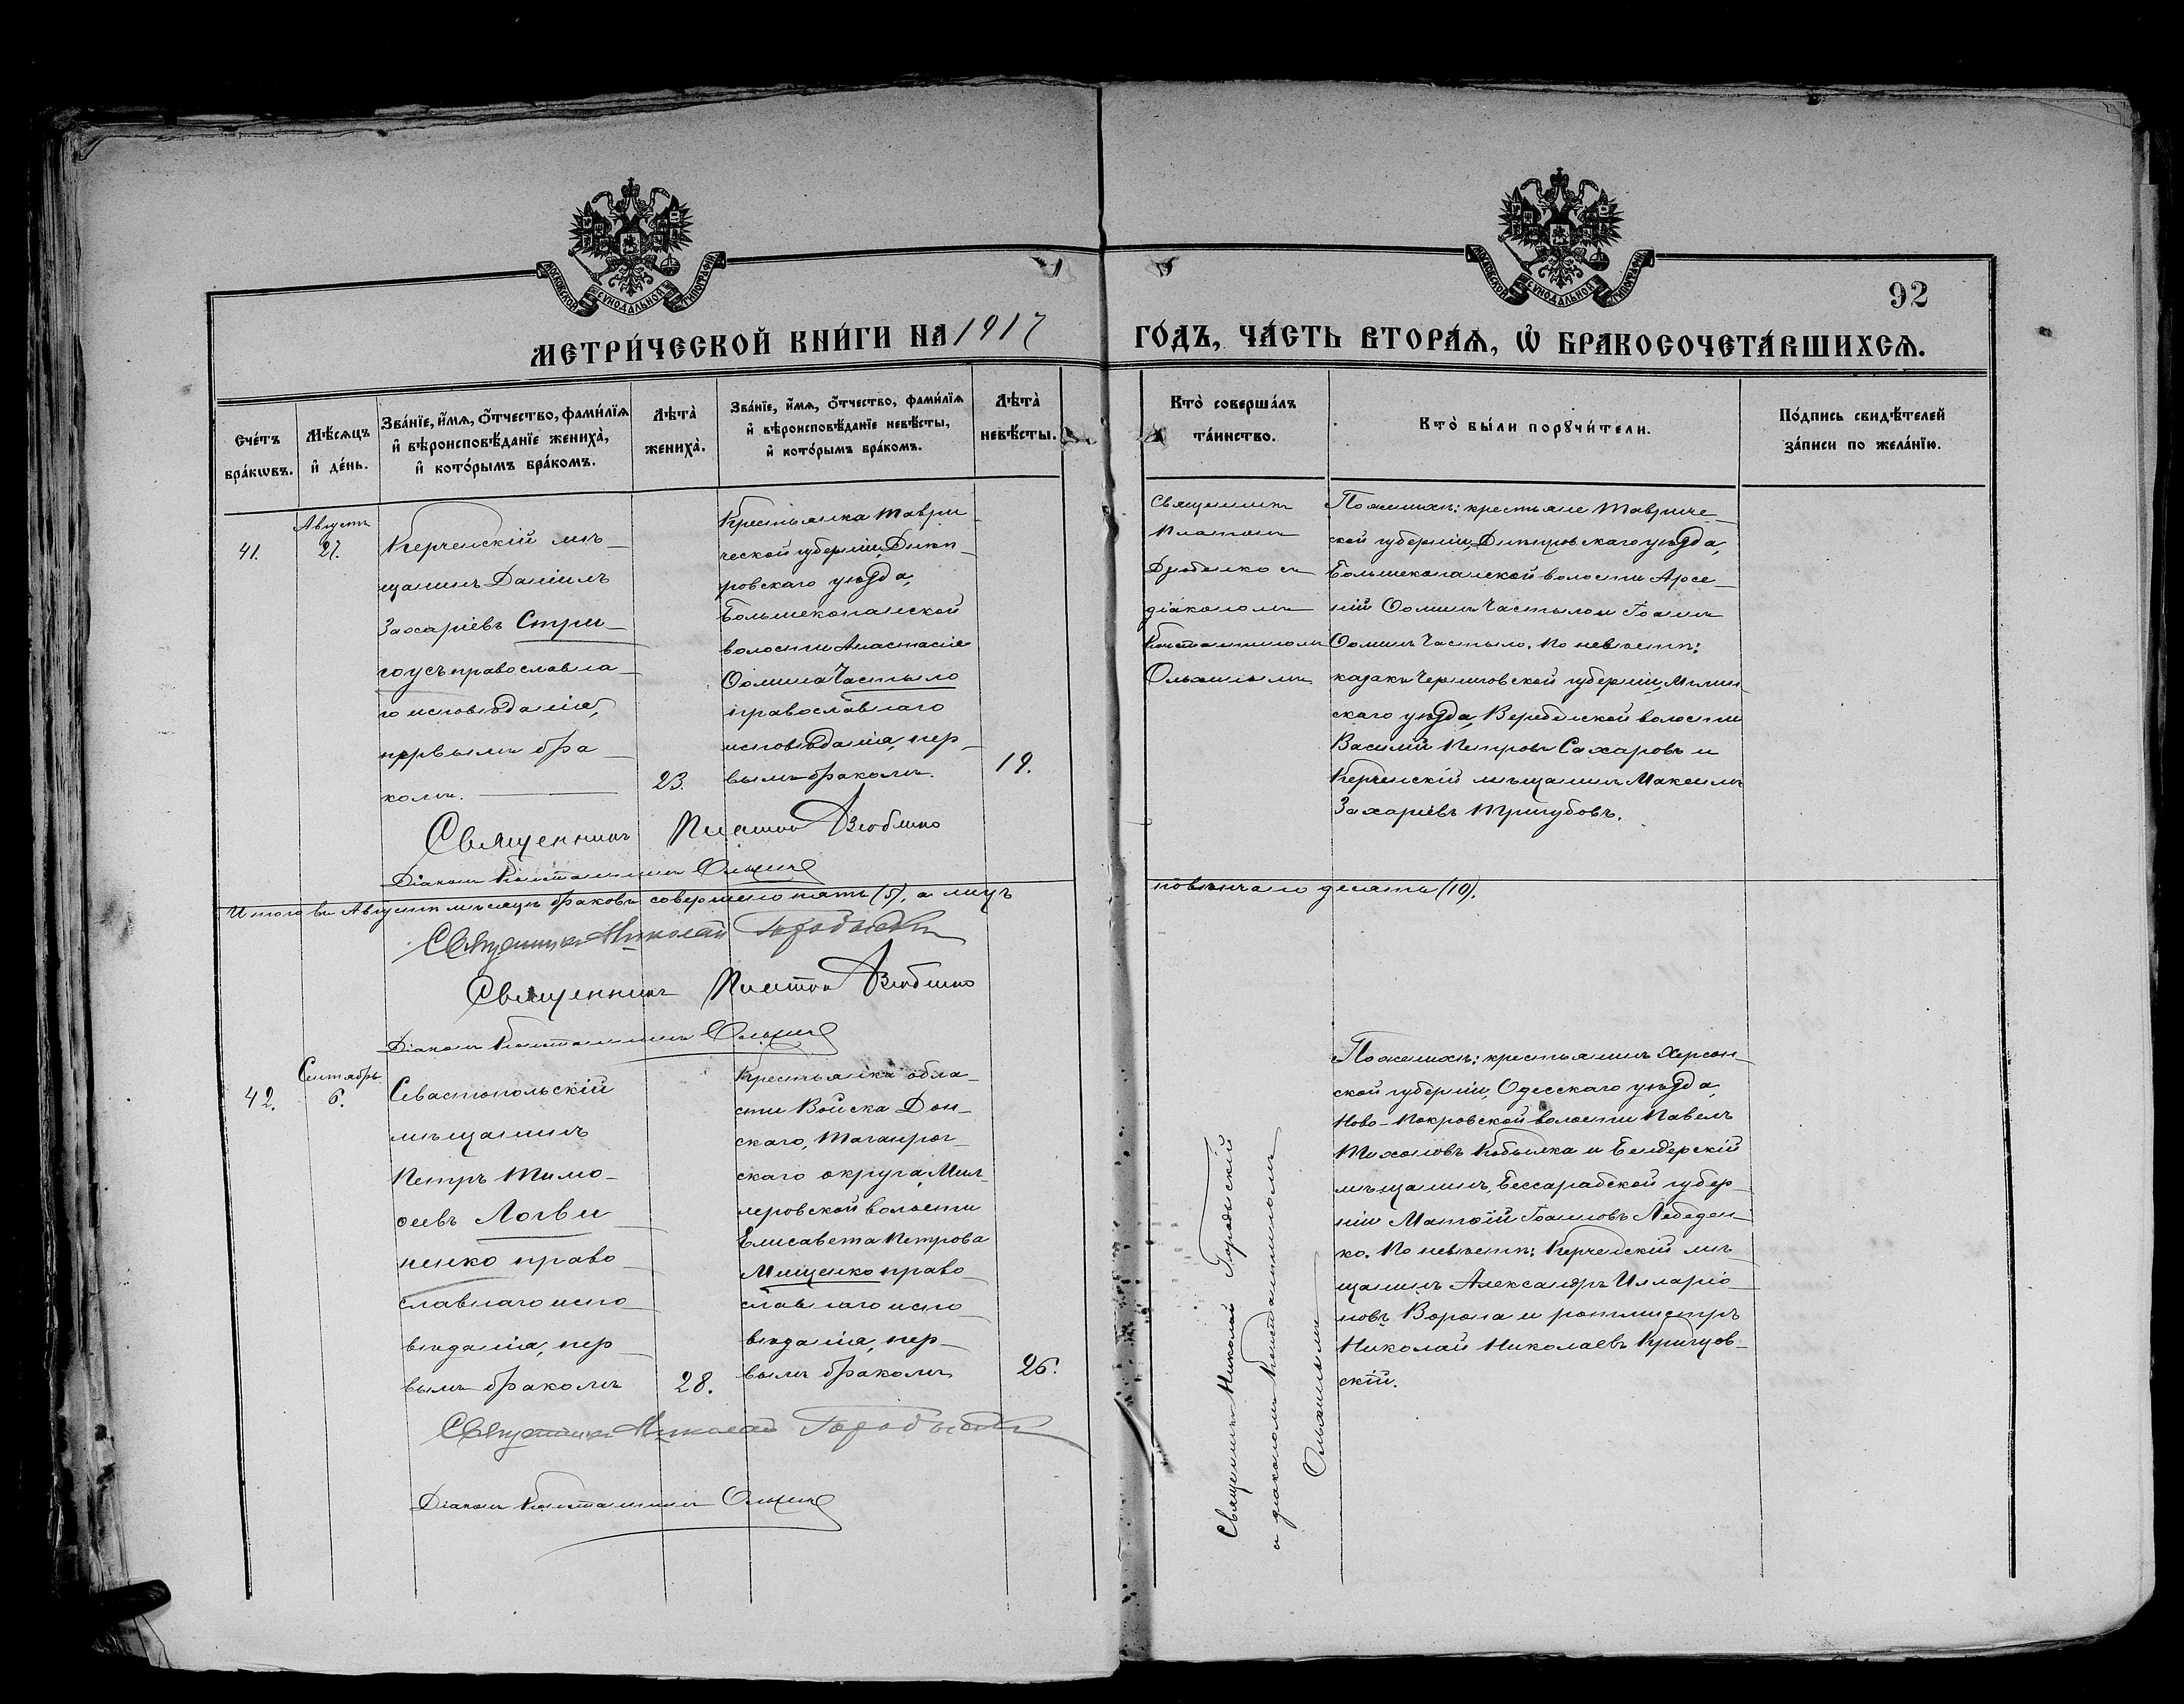 МОСКОВСКОЙ СѴНОДАЛЬНОЙ ТИПОГРАФІИ
МОСКОВСКОЙ СѴНОДАЛЬНОЙ ТИПОГРАФІИ
92
МЕТРИ́ЧЕСКОЙ КНИ́ГИ НА 1917
ГО́ДЪ, ЧА́СТЬ ВТОРА́Ѧ, Ѡ҆ БРАКОСОЧЕТА́ВШИХСѦ.
Сче́тъ
бра́кѡвъ.
Мѣ́сѧцъ
и҆ де́нь.
Зва́нїе, и҆́мѧ, ѻ҆́тчество, фами́лїѧ
и҆ вѣроисповѣ́данїе жениха̀,
и҆ кото́рымъ бра́комъ.
Лѣта̀
жениха̀.
Зва́нїе, и҆́мѧ, ѻ҆́тчество, фами́лїѧ
и҆ вѣроисповѣ́данїе невѣ́сты,
и҆ кото́рымъ бра́комъ.
Лѣта̀
невѣ́сты.
Кто̀ соверша́лъ
та́инство.
Кто̀ бы́ли порꙋчи́тели.
По́дпись свидѣ́телей
за́писи по жела́нїю.
41.
Августъ
27.
Керченскій мѣ-
щанинъ Даніилъ
Захаріевъ Стри-
гоусъ православна-
го исповѣданія,
первымъ бра-
комъ.
23.
Крестьянка Таври-
ческой губерніи, Днѣп-
ровскаго уѣзда,
Большекопанской
волости Анастасіе
Ѳомина Частыло
православнаго
исповѣданія, пер-
вымъ бракомъ.
19.
Священникъ
Платонъ
Дзюбенко съ
діакономъ
Константиномъ
Ольхинымъ
По женихѣ: крестьяне Тавриче-
ской губерніи, Днѣпровскаго уѣзда,
Большекопанской волости Арсе-
ній Ѳоминъ Частыло и Іоаннъ
Ѳоминъ Частыло. По невѣстѣ:
казакъ Черниговской губерніи, Мглин-
скаго уѣзда, волости
Василій Петровъ Сахаровъ и
Керченскій мѣщанинъ Максимъ
Захаріевъ Тригубовъ.
Священникъ Платон Дзюбенко
Діаконъ Константинъ Ольхинъ
Итого въ Августѣ мѣсяцѣ браковъ совершено пять (5), а лицъ
повѣнчано десять (10).
Священникъ Николай Городыскій
Священникъ Платон Дзюбенко
Діаконъ Константинъ Ольхинъ
42.
Сентябрь
6.
Севастопольскій
мѣщанинъ
Петръ Тимо-
ѳеевъ Логви-
ненко право-
славнаго испо-
вѣданія, пер-
вымъ бракомъ
28.
Крестьянка обла-
сти Войска Дон-
скаго, Таганрог-
скаго округа, Мил-
леровской волости
Елисавета Петрова
Мищенко право-
славнаго испо-
вѣданія, пер-
вымъ бракомъ
26.
Священникъ Николай Городыскій
съ діакономъ Константиномъ
Ольхинымъ
По женихѣ: крестьянинъ Херсон-
ской губерніи, Одесскаго уѣзда,
Ново-Покровской волости Павелъ
Тихоновъ Кобылка и Бендерскій
мѣщанинъ, Бессарабской губер-
ніи Матѳій Іоанновъ Лебеден-
ко. По невѣстѣ: Керченскій мѣ-
щанинъ Александръ Илларіо-
новъ Ворона и ротмистръ
Николай Николаевъ
скій.
Священникъ Николай Городыскій
Діаконъ Константинъ Ольхинъ